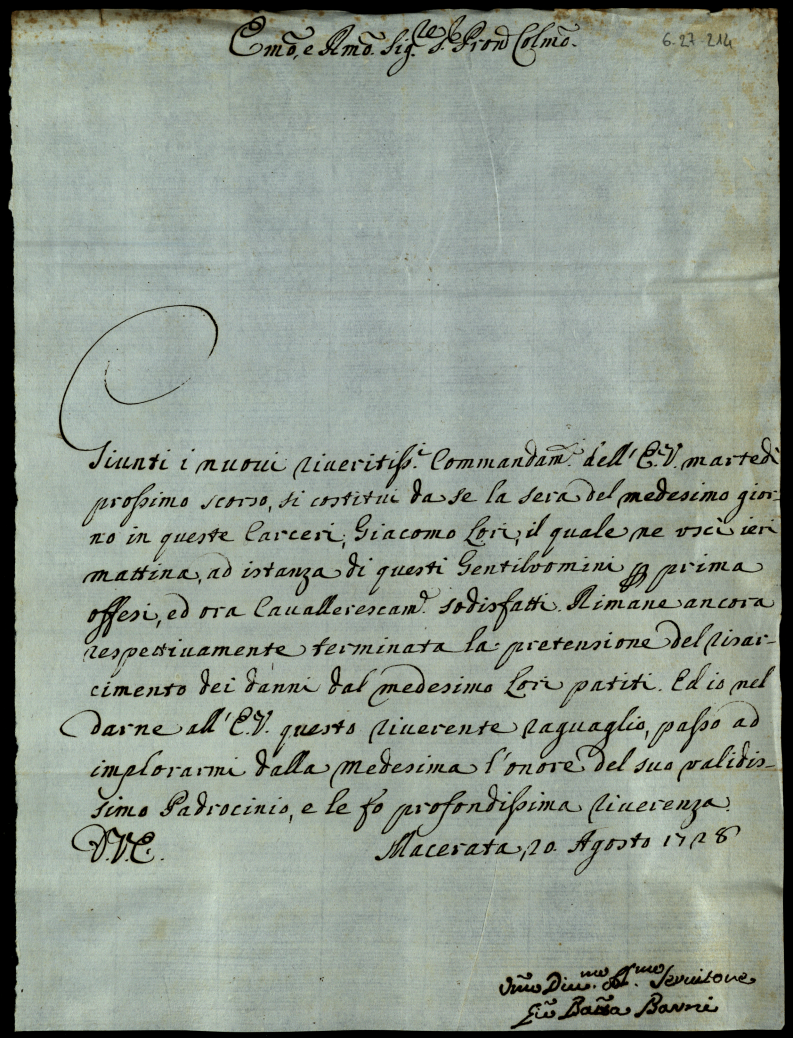 Em̃o, e Rm̃o. Sig.re Pron Colm̃o.
6-27-214
Giunti i nuovi riveritiss.i Commandam.i dell' E.V. martedì
prossimo scorso, si costituì da se la sera del medesimo gior-
no in queste Carceri, Giacomo Lori, il quale ne uscì ieri
mattina, ad istanza di questi Gentilvomini prima
offesi, ed ora Cavallerescam.e sodisfatti. Rimane ancora
respettivamente terminata la pretensione del risar-
cimento dei danni dal medesimo Lori patiti. Ed io nel
darne all' E.V. questo riverente raguaglio, passo ad
implorarmi dalla medesima l'onore del suo validis-
simo Padrocinio, e le fo profondissima riverenza
D.V.E. Macerata, 20. Agosto 1728
Vm̃o Div.mo Servitore
Gio Batta